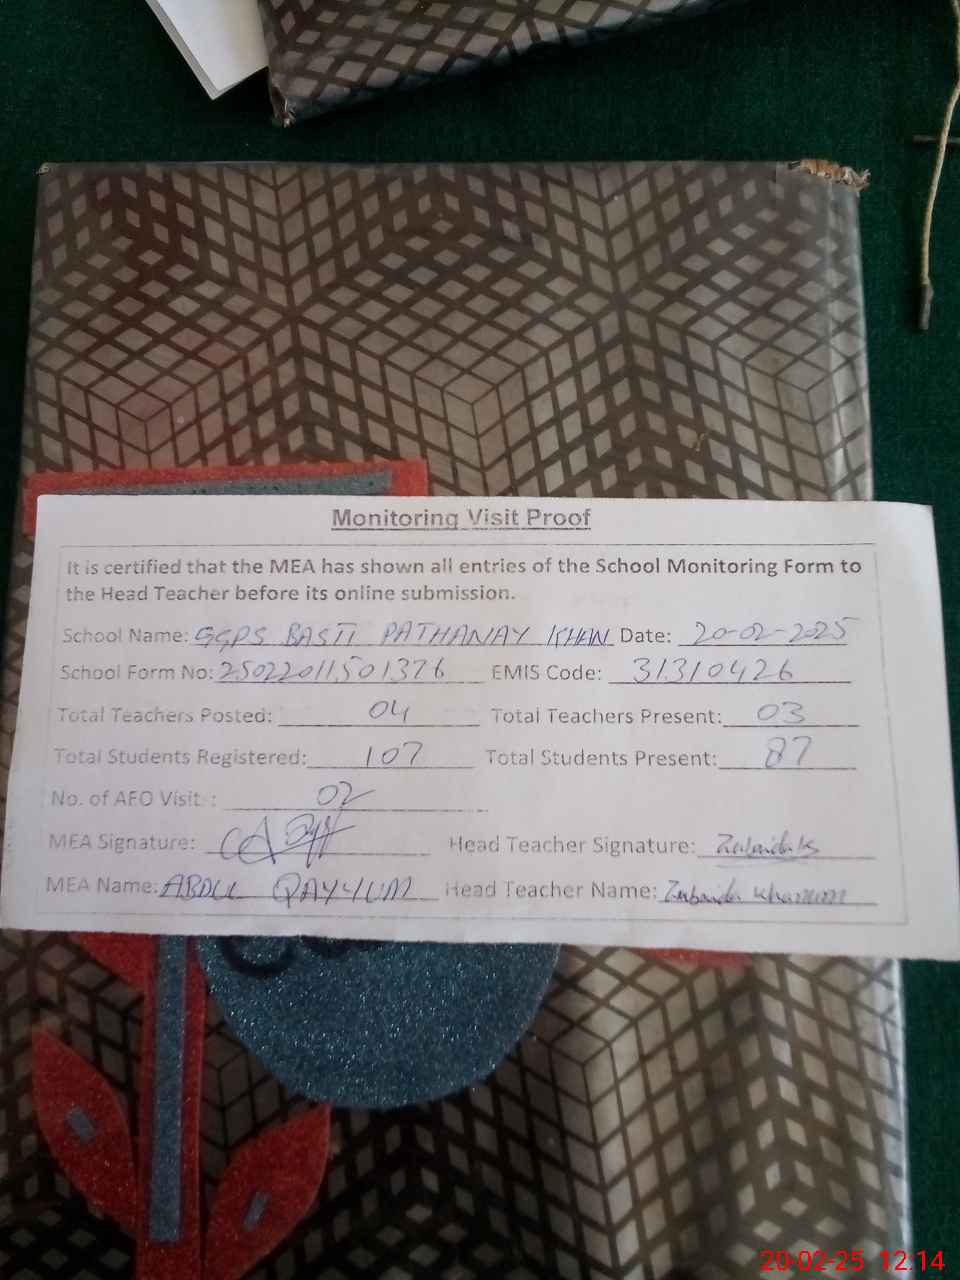 Monitoring Visit Proof
It is certified that the MEA has shown all entries of the School Monitoring Form to
the Head Teacher before its online submission.
School Name: GGPS BASTI PATHANAY KHAN Date: 20-02-2025
School Form No: 25022011501376 EMIS Code: 31310426
Total Teachers Posted: 04 Total Teachers Present: 03
Total Students Registered: 107 Total Students Present: 87
No. of AEO Visit : 02
MEA Signature: Head Teacher Signature:
MEA Name: ABDUL QAYYUM Head Teacher Name: Zubaida Khanum
20-02-25 12:14